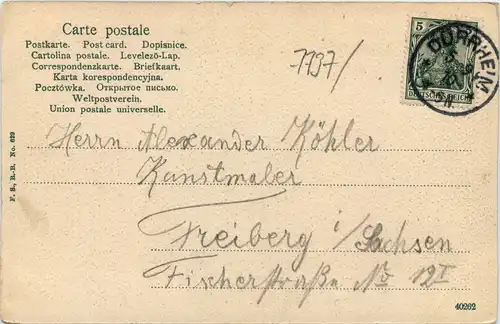 Carte postale
Postkarte. Post card. Dopisnice.
Cartolina postale. Levelező-Lap.
Correspondenzkarte. Briefkaart.
Karta korespondencyjna.
Pocztówka. Открытое письмо.
Weltpostverein.
Union postale universelle.
7797/
5
DEUTSCHES REICH
DÜRRHEIM
Herrn Alexander Köhler
Kunstmaler
Freiberg i/Sachsen
Fischerstraße No 12 I
F. S., B.-B. No. 629
40202